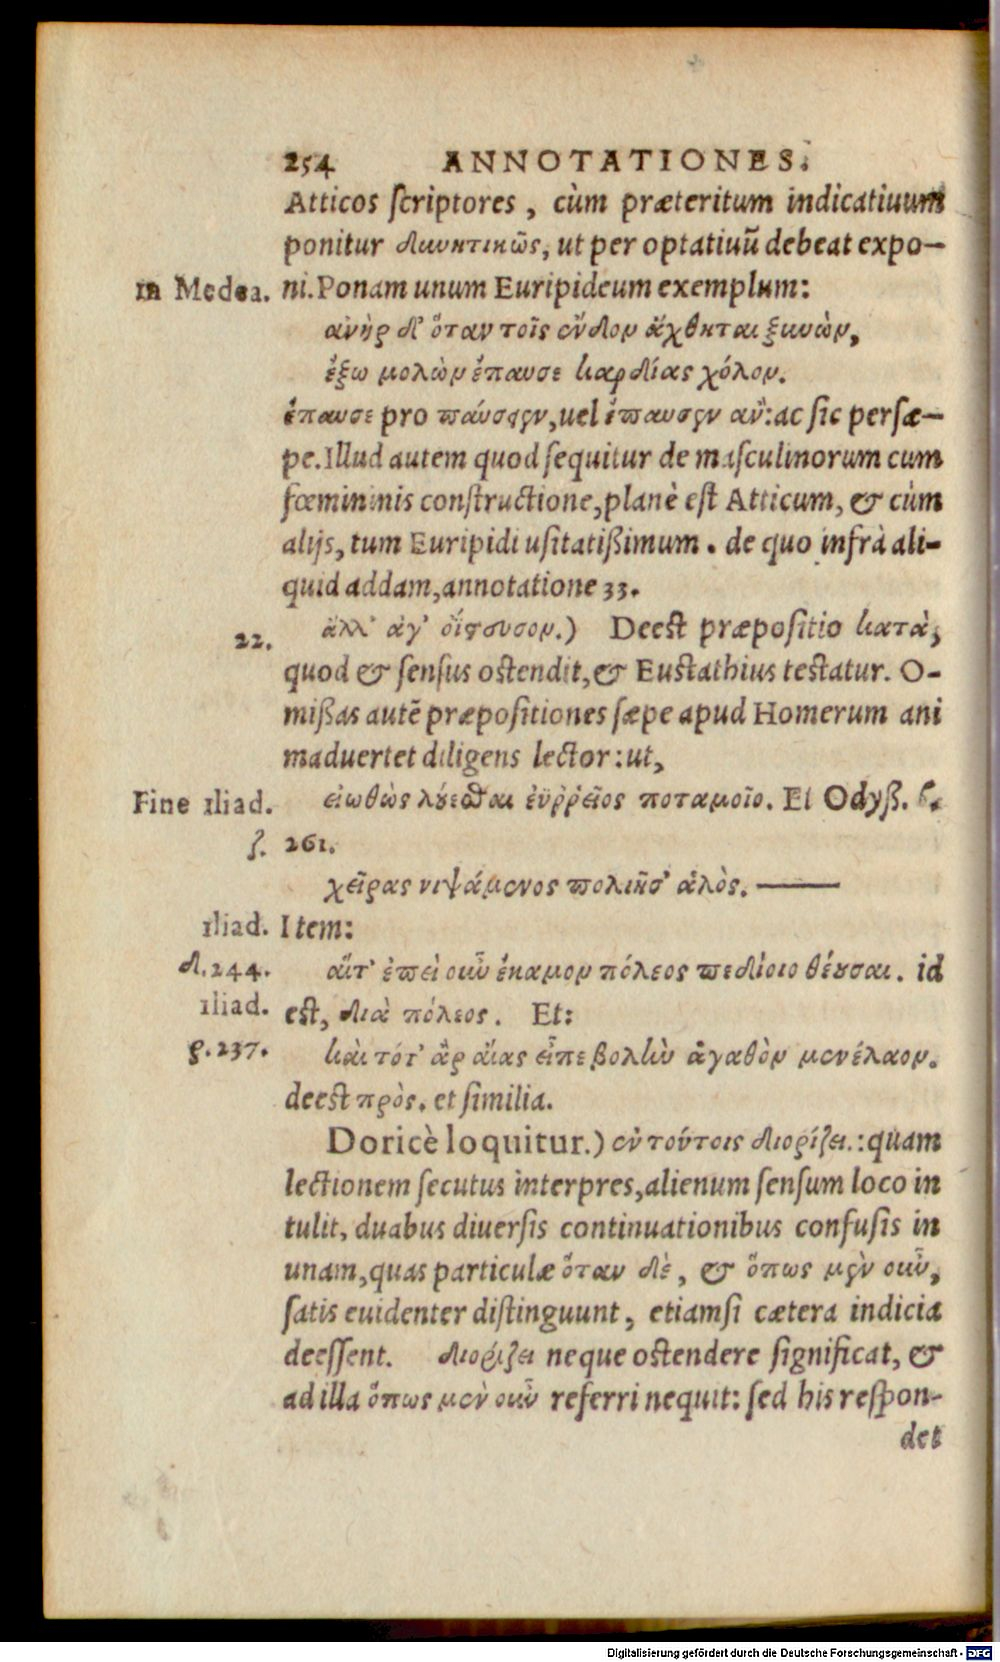 254 ANNOTATIONES.
Atticos scriptores, cùm præteritum indicatiuum
ponitur δυνητικῶς, ut per optatiuũ debeat expo-
in Medea. ni. Ponam unum Euripideum exemplum:
ἀνὴρ δ' ὅταν τοῖς ἔνδον ἄχθηται ξυνὼν,
ἔξω μολὼν ἔπαυσε καρδίας χόλον.
ἔπαυσε pro παύσειεν, uel ἔπαυσεν ἂν: ac sic persæ-
pe. Illud autem quod sequitur de masculinorum cum
fœmininis constructione, planè est Atticum, & cùm
alijs, tum Euripidi usitatißimum. de quo infrà ali-
quid addam, annotatione 33.
22. ἀλλ' ἀγ' οἴσυσον.) Deest præpositio κατὰ,
quod & sensus ostendit, & Eustathius testatur. O-
mißas autẽ præpositiones sæpe apud Homerum ani
maduertet diligens lector: ut,
Fine iliad. εἰωθὼς λούεσθαι ἐϋῤῥεῖος ποταμοῖο. Et Odyß. β.
ζ. 261.
χεῖρας νιψάμενος πολιῆσ' ἁλὸς. ———
iliad. Item:
δ. 244. αἵτ' ἐπεὶ οὖν ἔκαμον πόλεος πεδίοιο θέουσαι. id
iliad. est, διὰ πόλεος. Et:
ρ. 237. καὶ τότ' ἂρ αἴας εἶπε βοὴν ἀγαθὸν μενέλαον.
deest πρὸς. et similia.
Doricè loquitur.) ἐν τούτοις διορίζει.: quam
lectionem secutus interpres, alienum sensum loco in
tulit, duabus diuersis continuationibus confusis in
unam, quas particulæ ὅταν δὲ, & ὅπως μὲν οὖν,
satis euidenter distinguunt, etiamsi cætera indicia
deessent. διορίζει neque ostendere significat, &
ad illa ὅπως μὲν οὖν referri nequit: sed his respon-
det
Digitalisierung gefördert durch die Deutsche Forschungsgemeinschaft - DFG